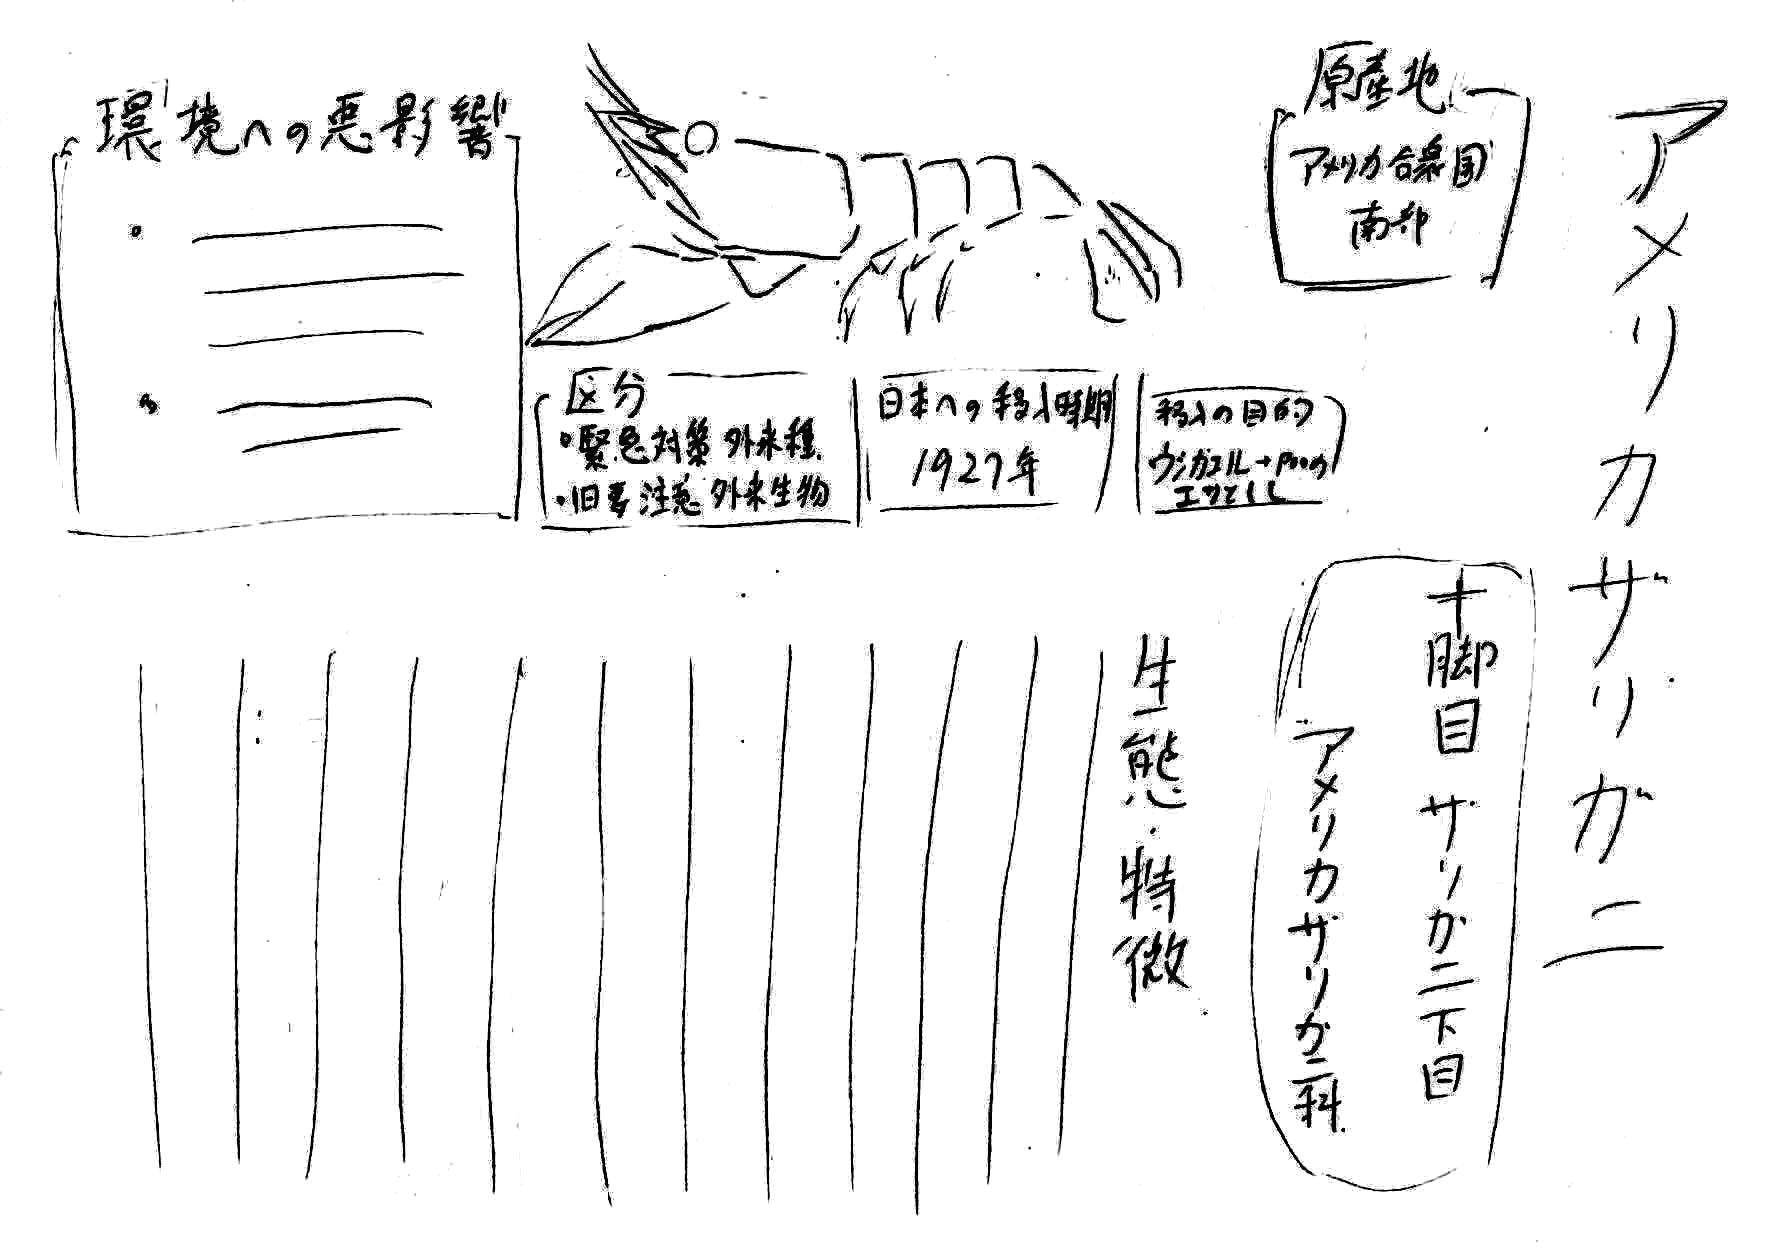 アメリカザリガニ
原産地
アメリカ合衆国
南部
十脚目 ザリガニ下目
アメリカザリガニ科
環境への悪影響
区分
・緊急対策外来種
・旧要注意外来生物
日本への移入時期
1927年
移入の目的
ウシガエル
エサとして
生態・特徴